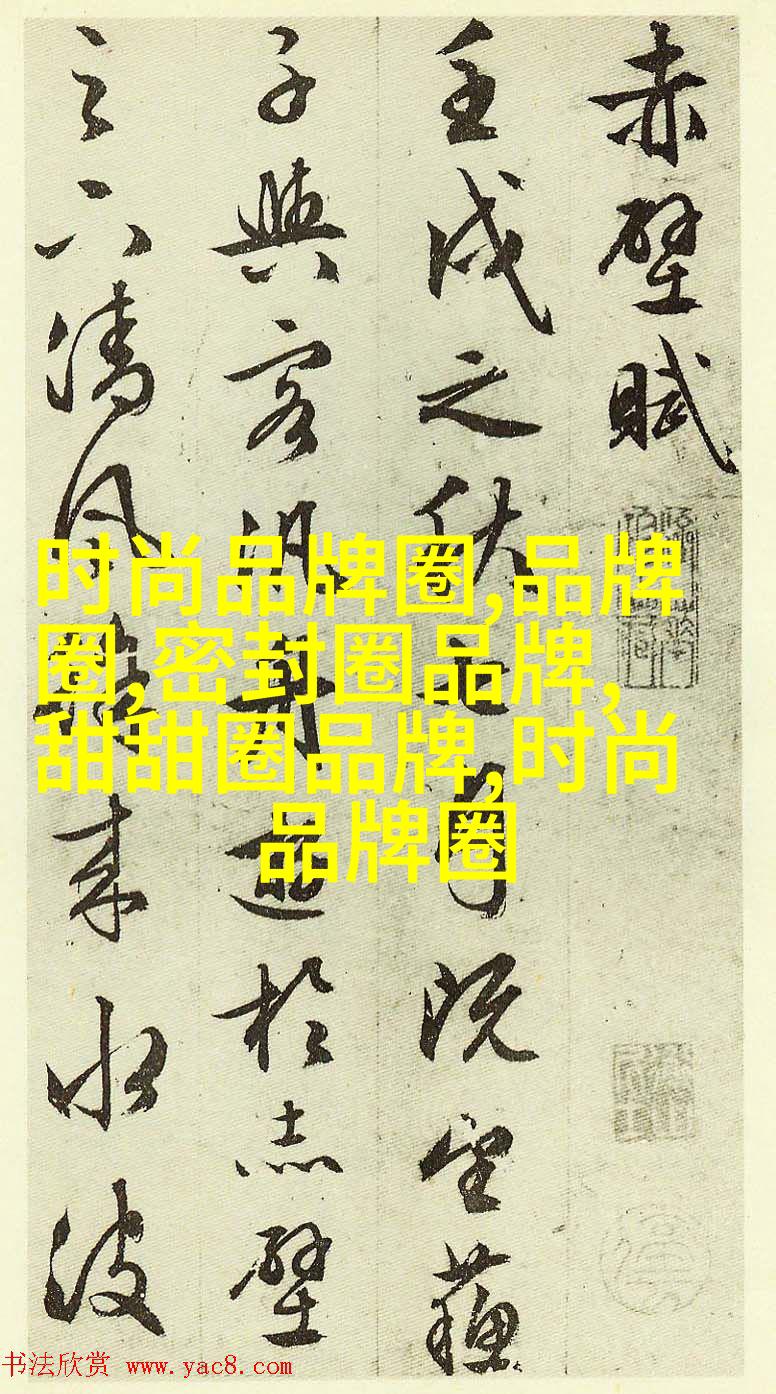 赤壁賦
壬戌之秋七月既望蘓
子與客汎舟遊於赤壁
之下清風徐來水波
时尚品牌圈,品牌
圈,密封圈品牌,
甜甜圈品牌,时尚
品牌圈
书法欣赏 www.yac8.com